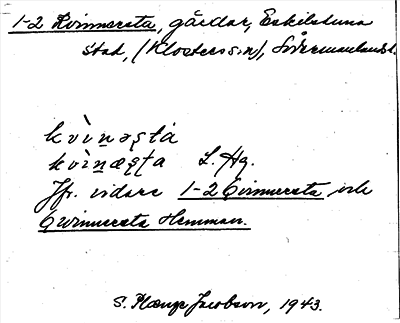 1-2 Kvinnersta, gårdar, Eskilstuna
stad, (Klosters sn), Södermanlands l.
kvìnəsta
kvìnæṣṭa L. Hg.
Jfr. vidare 1-2 Qvinnersta och
Qvinnersta Hemman.
S. Plænge Jacobson, 1943.